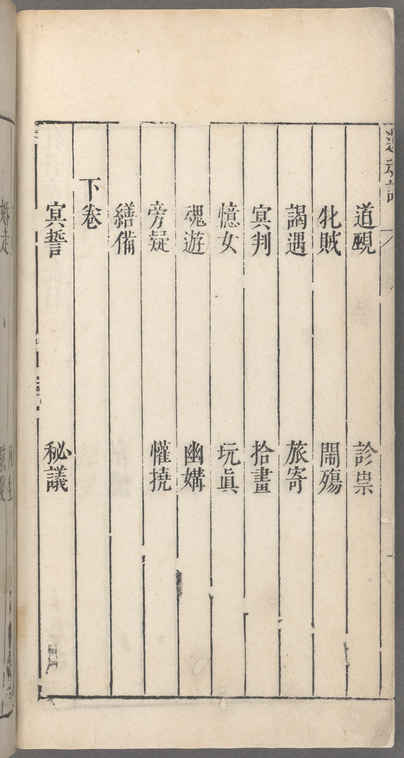 道覡 診祟
牝賊 鬧殤
謁遇 旅寄
冥判 拾畫
憶女 玩眞
魂遊 幽媾
旁疑 懽撓
繕備
下卷
冥誓 秘議